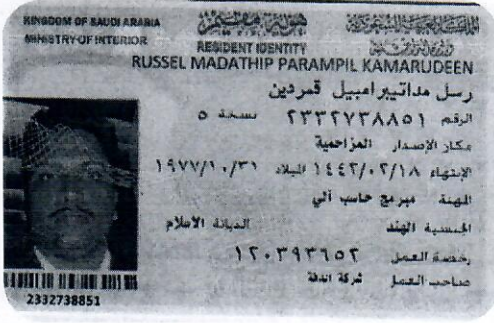 KINGDOM OF SAUDI ARABIA
MINISTRY OF INTERIOR
هوية مقيم
RESIDENT IDENTITY
المملكة العربية السعودية
وزارة الداخلية
RUSSEL MADATHIP PARAMPIL KAMARUDEEN
رسل مداتيبرامبيل قمردين
الرقم ٢٣٣٢٧٣٨٨٥١ نسخة ٥
مكان الإصدار المزاحمية
الإنتهاء ١٤٤٢/٠٢/١٨ الميلاد ١٩٧٧/١٠/٣١
المهنة مبرمج حاسب آلي
الجنسية الهند الديانة الاسلام
رخصة العمل ١٢٠٣٩٣٦٥٢
صاحب العمل شركة
2332738851